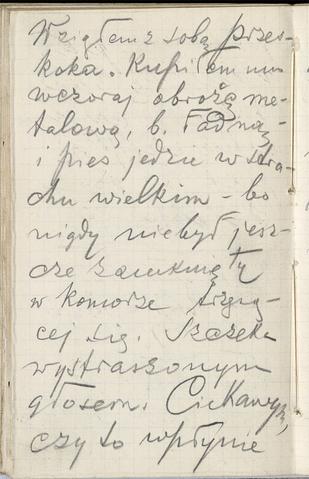 Wziąłem z sobą przes-
koka. Kupiłem mu
wczoraj obrożę me-
talową, b. ładną,
i pies jedzie w stra-
chu wielkim – bo
nigdy nie był jesz-
cze zamknięty
w komorze trzęsą-
cej się. Szczeka
wystraszonym
głosem. Ciekawym,
czy to wpłynie